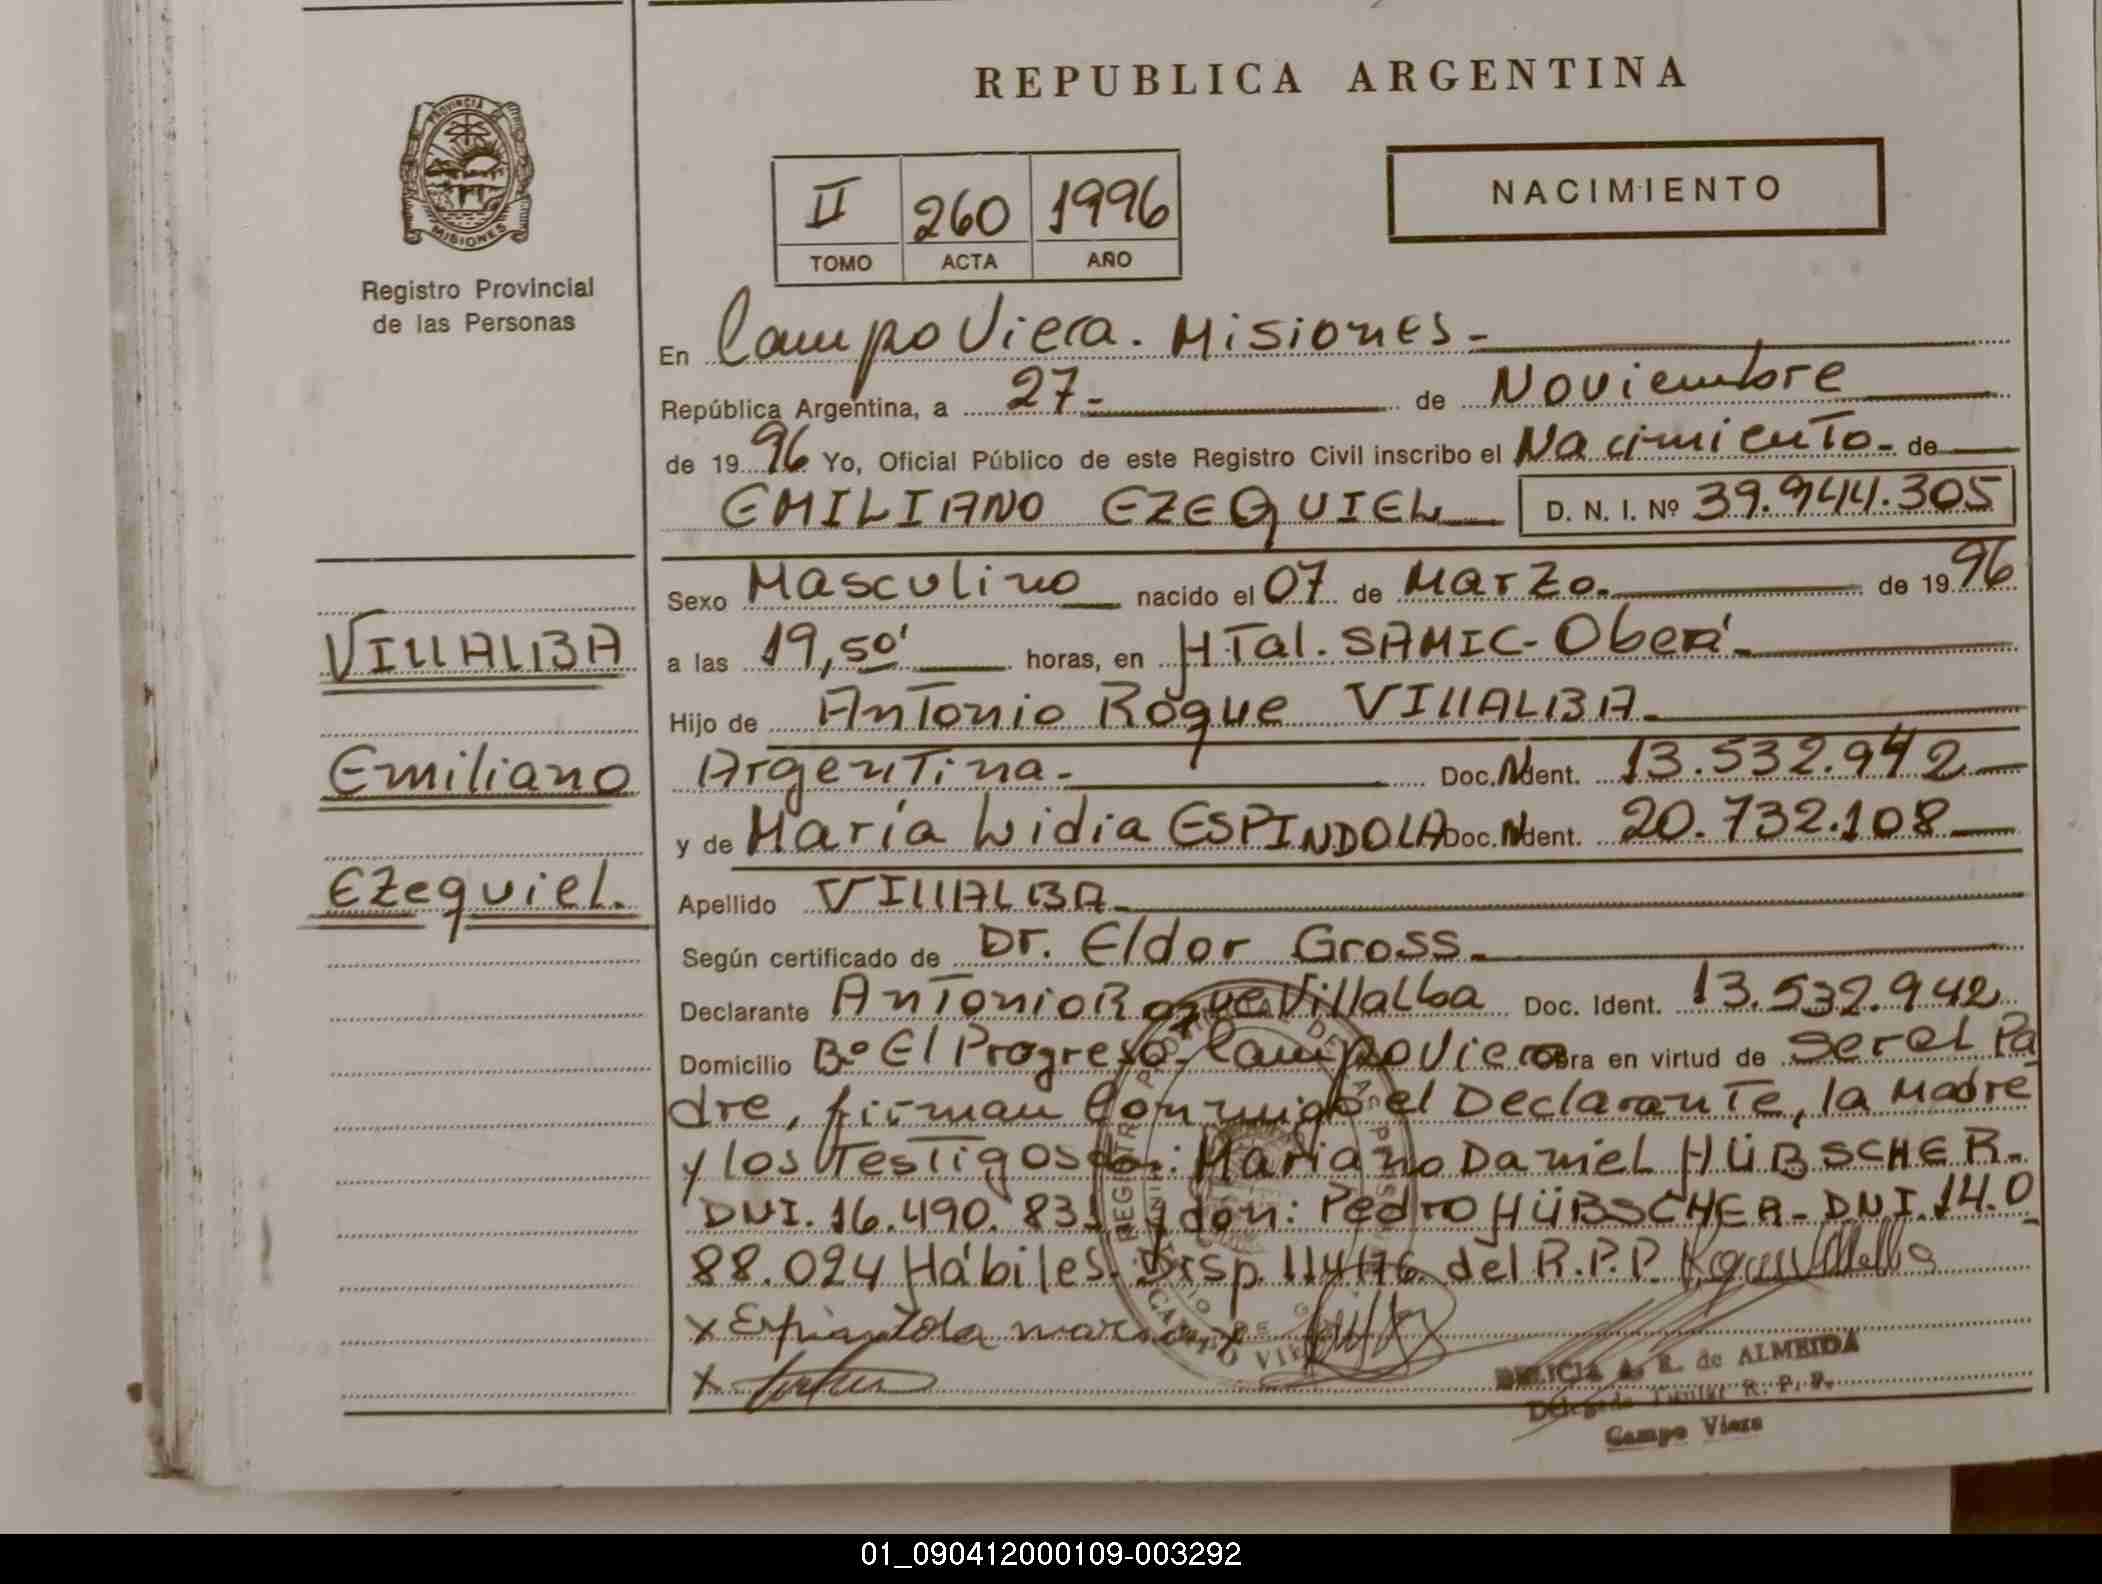 REPUBLICA ARGENTINA
PROVINCIA DE
MISIONES
Registro Provincial
de las Personas
NACIMIENTO
II 260 1996
TOMO ACTA AÑO
En Campo Viera. Misiones-
República Argentina, a 27- de Noviembre
de 1996 Yo, Oficial Público de este Registro Civil inscribo el Nacimiento- de
EMILIANO EZEQUIEL D. N. I. Nº 39.944.305
Sexo Masculino nacido el 07 de Marzo. de 1996
VILLALBA
a las 19,50' horas, en H.Tal. SAMIC- Oberá-
Hijo de Antonio Roque VILLALBA-
Emiliano
Argentina- Doc. Ident. 13.532.942
y de María Lidia ESPINDOLA Doc. Ident. 20.732.108
Ezequiel.
Apellido VILLALBA-
Según certificado de Dr. Eldor Gross-
Declarante Antonio Roque Villalba Doc. Ident. 13.532.942
Domicilio Bº El Progreso- Campo Viera Obra en virtud de Ser el Pa
dre, firman Conmigo el Declarante, la Madre
y los Testigos don: Mariano Daniel HÜBSCHER-
DNI. 16.490.831 y don: Pedro HÜBSCHER- DNI. 14.0
88.024 Hábiles. Disp. 114/76 del R.P.P.
x Espindola maria x
x
DELICIA A. R. de ALMEIDA
Delegada Titular R. P. P.
Campo Viera
01_090412000109-003292